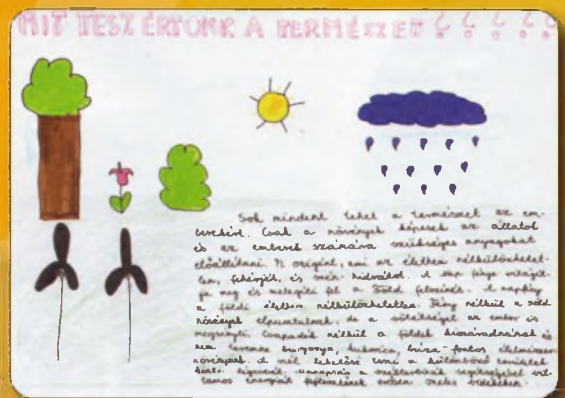 MIT TESZ ÉRTÜNK A TERMÉSZET? ? ? ? ? ?
Sok mindent tehet a természet az em-
berekért. Csak a növények képesek az állatok
és az emberek számára szükséges anyagokat
előállítani. Az oxigént, ami az életben nélkülözhetet-
len, fehérjét, és szén-hidrátot. A nap fénye világít-
ja meg és melegíti fel a Föld felszínét. A napfény
a földi életben nélkülözhetetlen. Fény nélkül a zöld
növények elpusztulnak, de a sötétséget az ember is
megsínyli. Csapadék nélkül a földek kiszáradnának és
nem teremne burgonya, kukorica, búza - fontos élelmiszer
növények. A szél lehetővé teszi a különböző
légcserét. Manapság a segítségével vil-
lamos energiát fejlesztenek